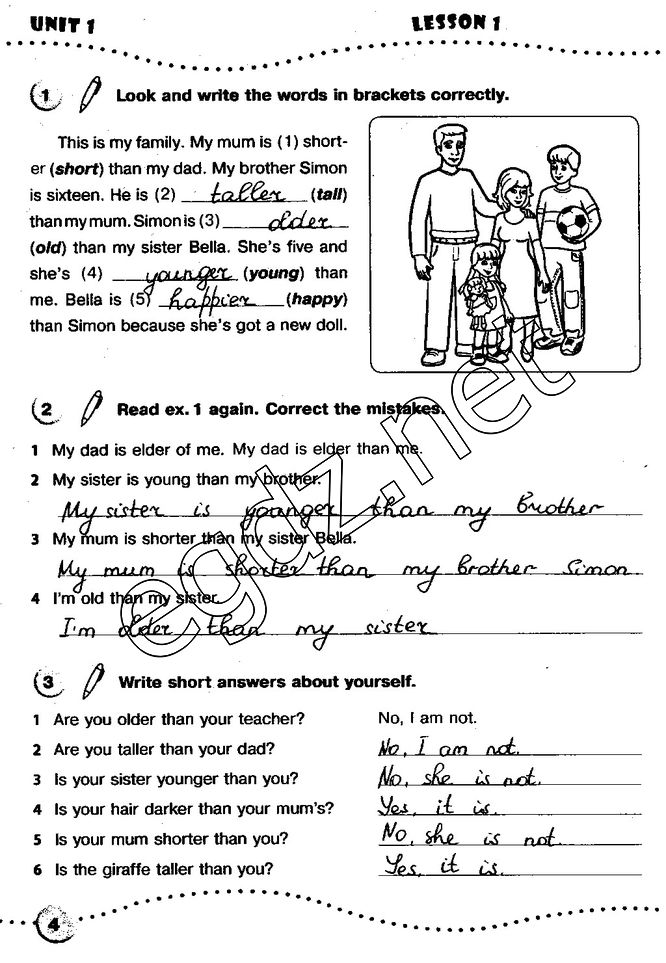 UNIT 1
LESSON 1
1 Look and write the words in brackets correctly.
This is my family. My mum is (1) short-
er (short) than my dad. My brother Simon
is sixteen. He is (2) taller (tall)
than my mum. Simon is (3) older
(old) than my sister Bella. She's five and
she's (4) younger (young) than
me. Bella is (5) happier (happy)
than Simon because she's got a new doll.
2 Read ex. 1 again. Correct the mistakes.
1 My dad is elder of me. My dad is elder than me.
2 My sister is young than my brother.
My sister is younger than my brother
3 My mum is shorter than my sister Bella.
My mum is shorter than my brother Simon
4 I'm old than my sister.
I'm older than my sister
3 Write short answers about yourself.
1 Are you older than your teacher? No, I am not.
2 Are you taller than your dad? No, I am not.
3 Is your sister younger than you? No, she is not.
4 Is your hair darker than your mum's? Yes, it is.
5 Is your mum shorter than you? No, she is not.
6 Is the giraffe taller than you? Yes, it is.
4
egdz.net